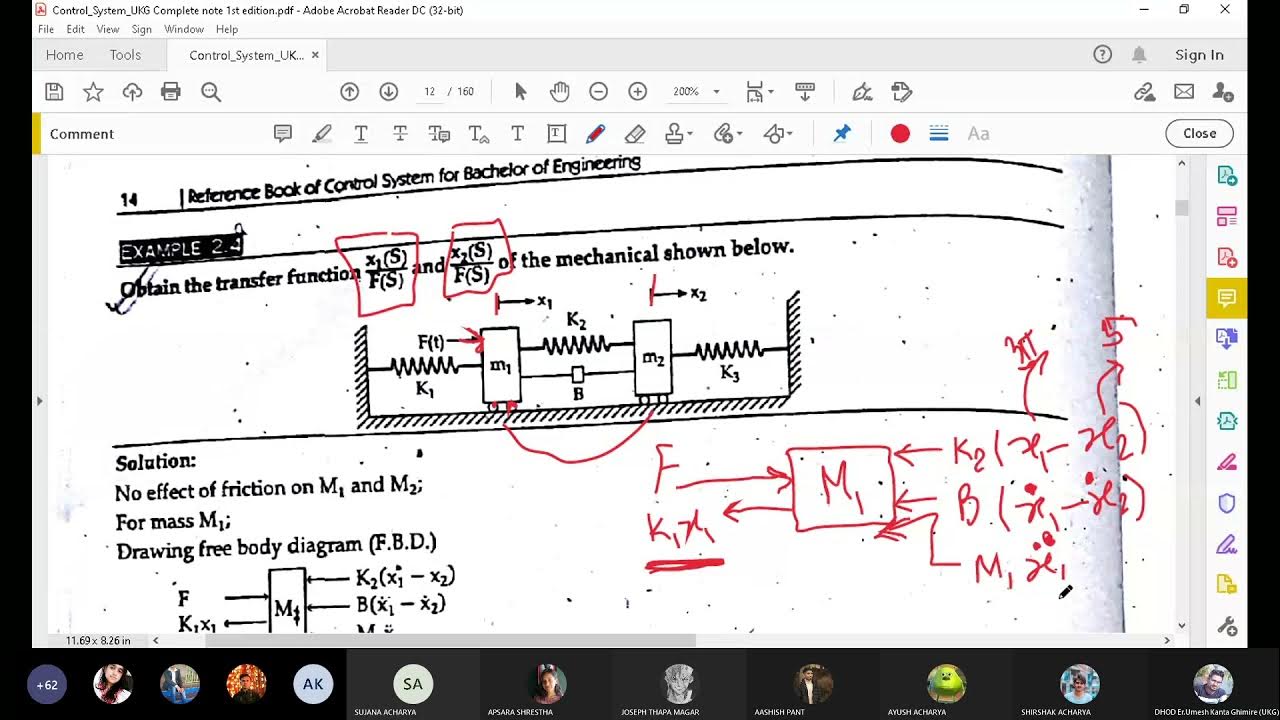 Control_System_UKG Complete note 1st edition.pdf - Adobe Acrobat Reader DC (32-bit)
File Edit View Sign Window Help
Home Tools Control_System_UK... × Sign In
12 / 160 200%
Comment Aa Close
14 | Reference Book of Control System for Bachelor of Engineering
EXAMPLE 2.4
Obtain the transfer function x₁(S)/F(S) and x₂(S)/F(S) of the mechanical shown below.
x₁ x₂
F(t) K₂
m₁ m₂
K₁ B K₃
Solution:
No effect of friction on M₁ and M₂;
For mass M₁;
Drawing free body diagram (F.B.D.)
F K₂(x₁ − x₂)
M₁ B(ẋ₁ − ẋ₂)
K₁x₁
5
F M₁ K₂(x₁ − x₂)
K₁x₁ B(ẋ₁ − ẋ₂)
M₁ẍ₁
11.69 x 8.26 in
+62 AK SA
SUJANA ACHARYA APSARA SHRESTHA JOSEPH THAPA MAGAR AASHISH PANT AYUSH ACHARYA SHIRSHAK ACHARYA DHOD Er.Umesh Kanta Ghimire (UKG)